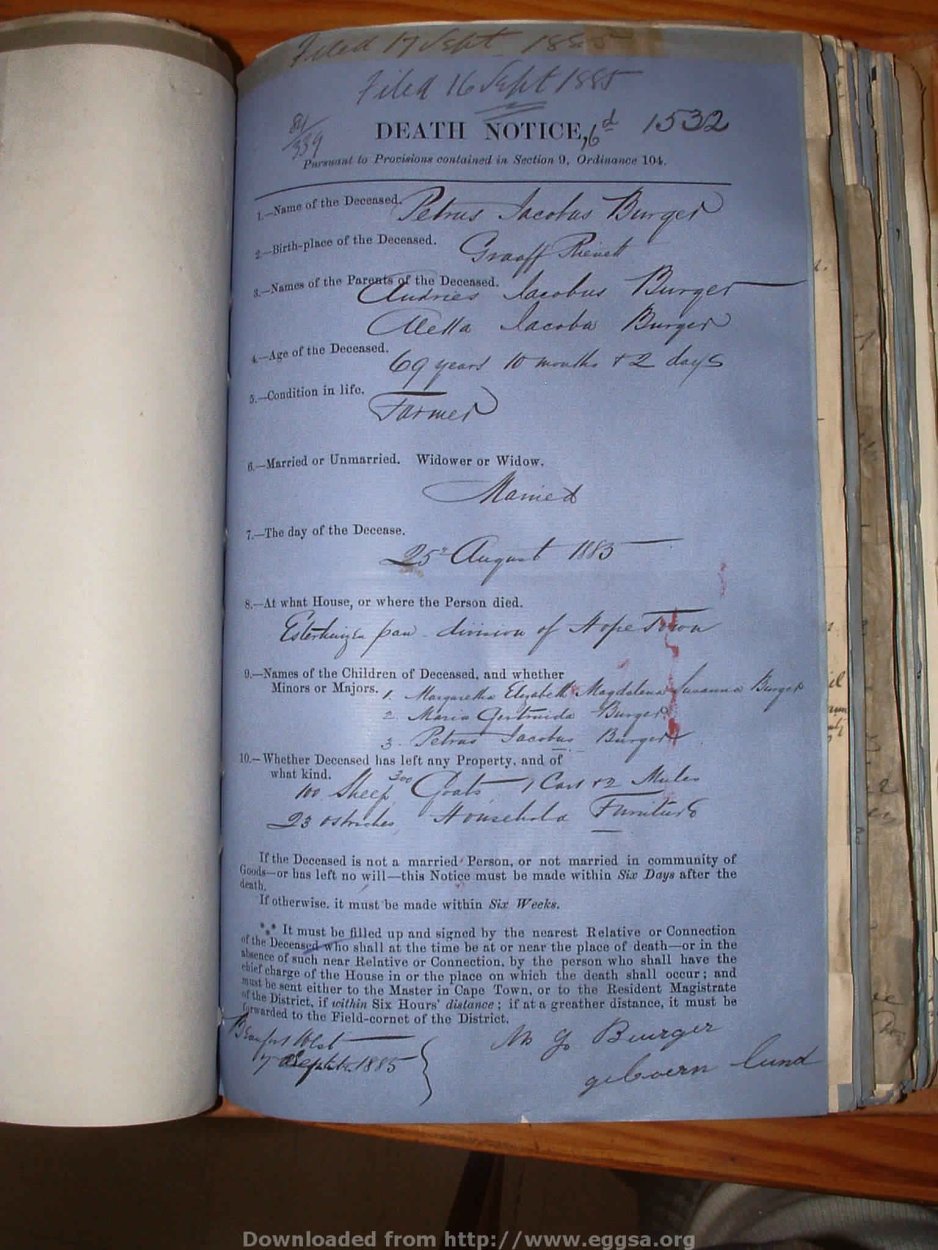 Filed 17 Sept 1885
Filed 16 Sept 1885
DEATH NOTICE, 6d 1532
Pursuant to Provisions contained in Section 9, Ordinance 104.
1.—Name of the Deceased. Petrus Jacobus Burger
2.—Birth-place of the Deceased. Graaff Reinett
3.—Names of the Parents of the Deceased. Andries Jacobus Burger
Aletta Jacoba Burger
4.—Age of the Deceased. 69 years 10 months + 2 days
5.—Condition in life. Farmer
6.—Married or Unmarried. Widower or Widow.
Married
7.—The day of the Decease.
25 August 1885
8.—At what House, or where the Person died.
Esterhuizen pan division of Hope Town
9.—Names of the Children of Deceased, and whether
Minors or Majors. 1. Margaretha Elizabeth Magdalena Susanna Burger
2. Maria Gertruida Burger
3. Petrus Jacobus Burger
10.—Whether Deceased has left any Property, and of
what kind. 100 Sheep 300 Goats 1 Cart + 2 Mules
23 ostriches Household Furniture
If the Deceased is not a married Person, or not married in community of
Goods—or has left no will—this Notice must be made within Six Days after the
death.
If otherwise. it must be made within Six Weeks.
*** It must be filled up and signed by the nearest Relative or Connection
of the Deceased who shall at the time be at or near the place of death—or in the
absence of such near Relative or Connection, by the person who shall have the
chief charge of the House in or the place on which the death shall occur; and
must be sent either to the Master in Cape Town, or to the Resident Magistrate
of the District, if within Six Hours' distance; if at a greather distance, it must be
forwarded to the Field-cornet of the District.
Beaufort West
7 Septbr. 1885
M G Buurger
geboern Lund
Downloaded from http://www.eggsa.org